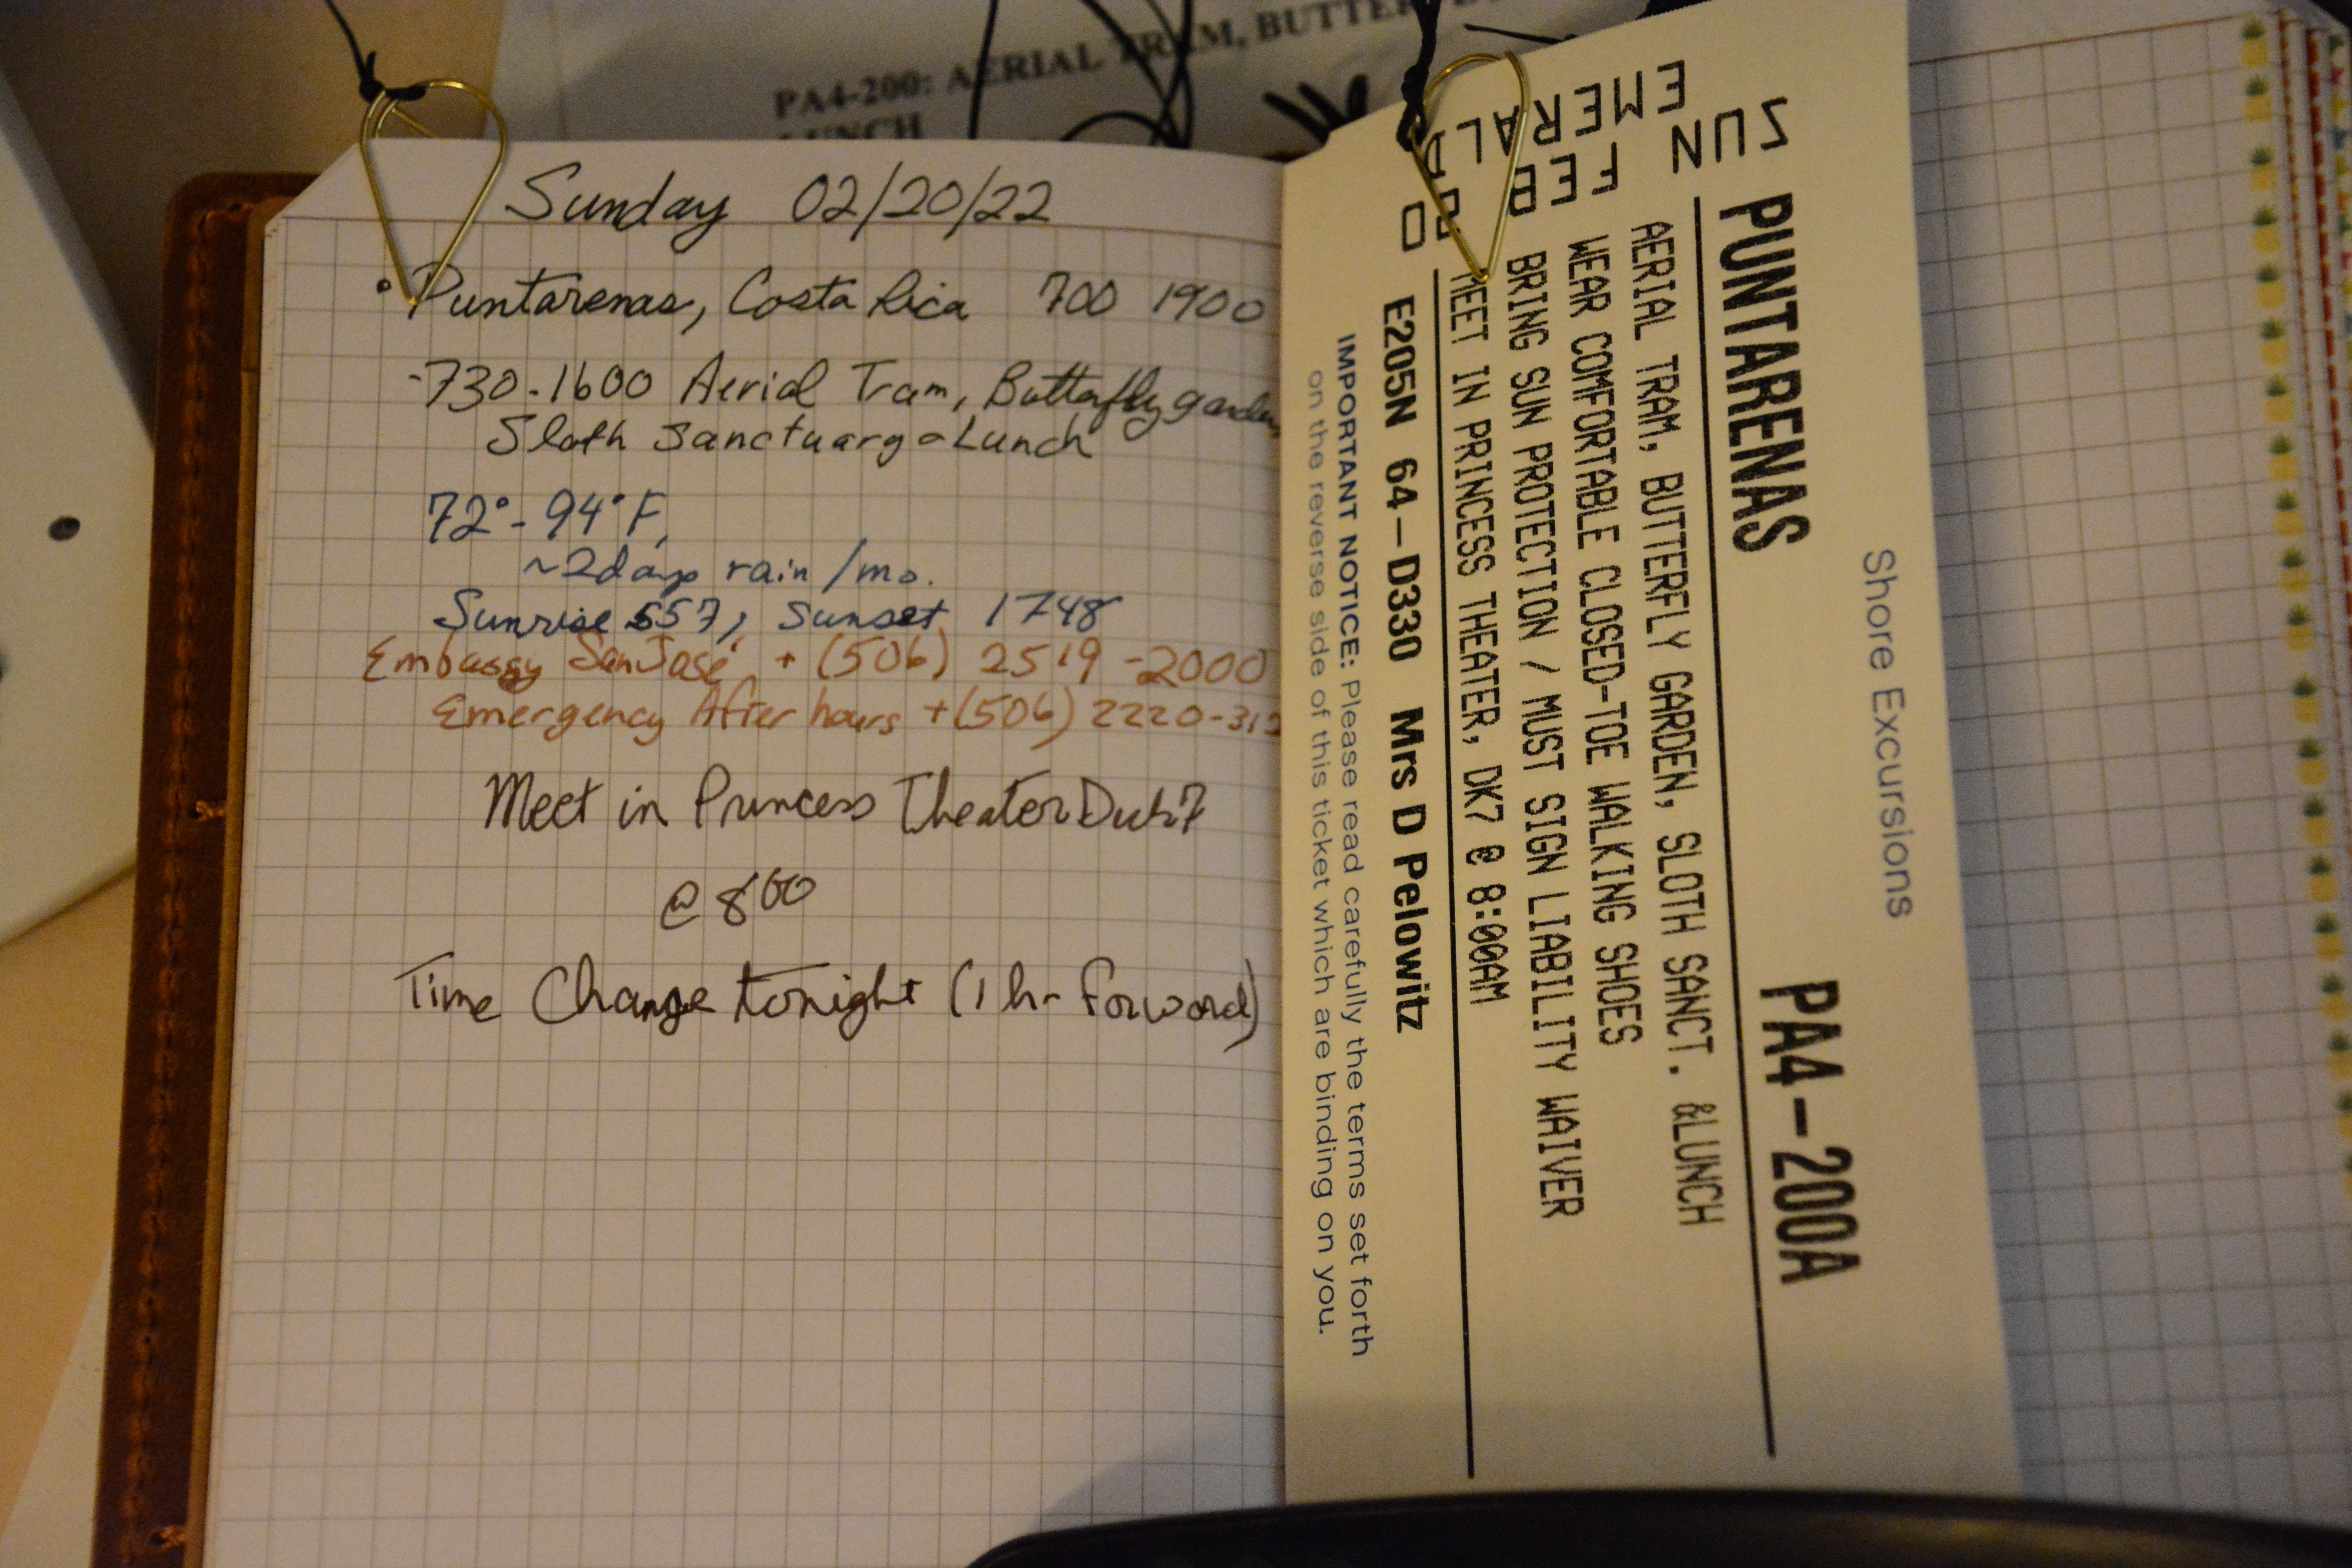 PA4-200: AERIAL TRAM,
LUNCH
Sunday 02/20/22
• Puntarenas, Costa Rica 700 1900
-730-1600 Aerial Tram, Butterfly garden,
Sloth Sanctuary & Lunch
72°- 94°F,
~2days rain /mo.
Sunrise 557, Sunset 1748
Embassy San José + (506) 2519-2000
Emergency After hours +(506) 2220-312
Meet in Princess Theater Deck 7
@ 800
Time Change tonight (1 hr forward)
Shore Excursions
PUNTARENAS PA4-200A
AERIAL TRAM, BUTTERFLY GARDEN, SLOTH SANCT. &LUNCH
WEAR COMFORTABLE CLOSED-TOE WALKING SHOES
BRING SUN PROTECTION / MUST SIGN LIABILITY WAIVER
MEET IN PRINCESS THEATER, DK7 @ 8:00AM
E205N 64-D330 Mrs D Pelowitz
IMPORTANT NOTICE: Please read carefully the terms set forth
on the reverse side of this ticket which are binding on you.
SUN FEB
EMERALD